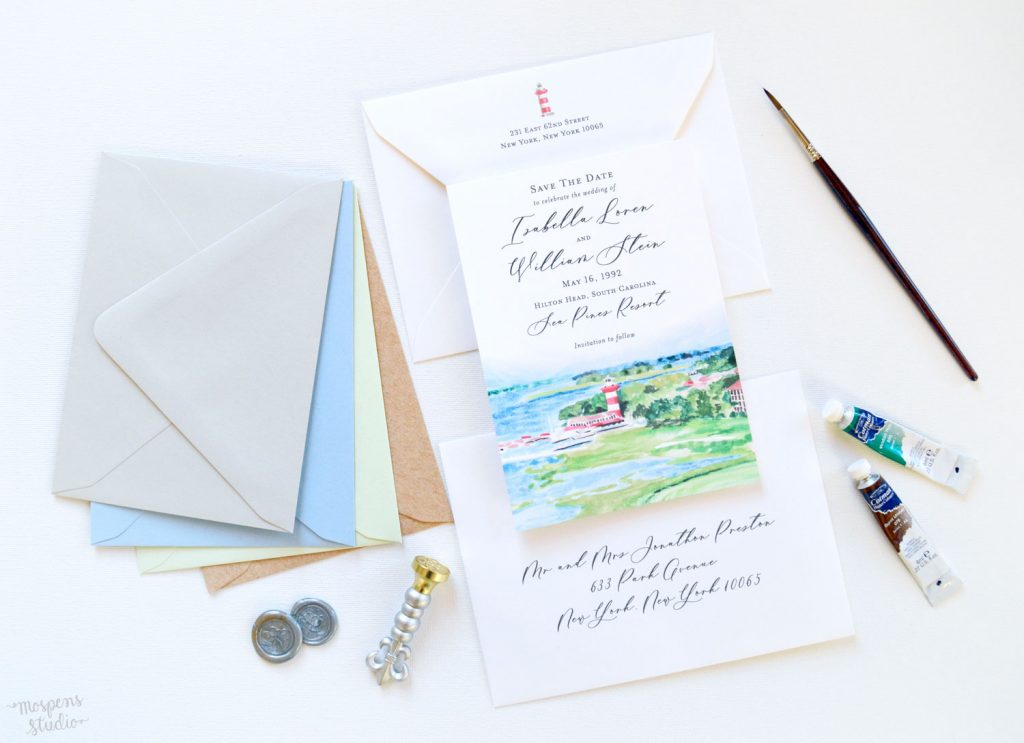 231 East 62nd Street
New York, New York 10065
Save The Date
to celebrate the wedding of
Isabella Loren
and
William Stein
May 16, 1992
Hilton Head, South Carolina
Sea Pines Resort
Invitation to follow
Mr and Mrs Jonathon Preston
633 Park Avenue
New York, New York 10065
Cotman
Cotman
mospens
studio